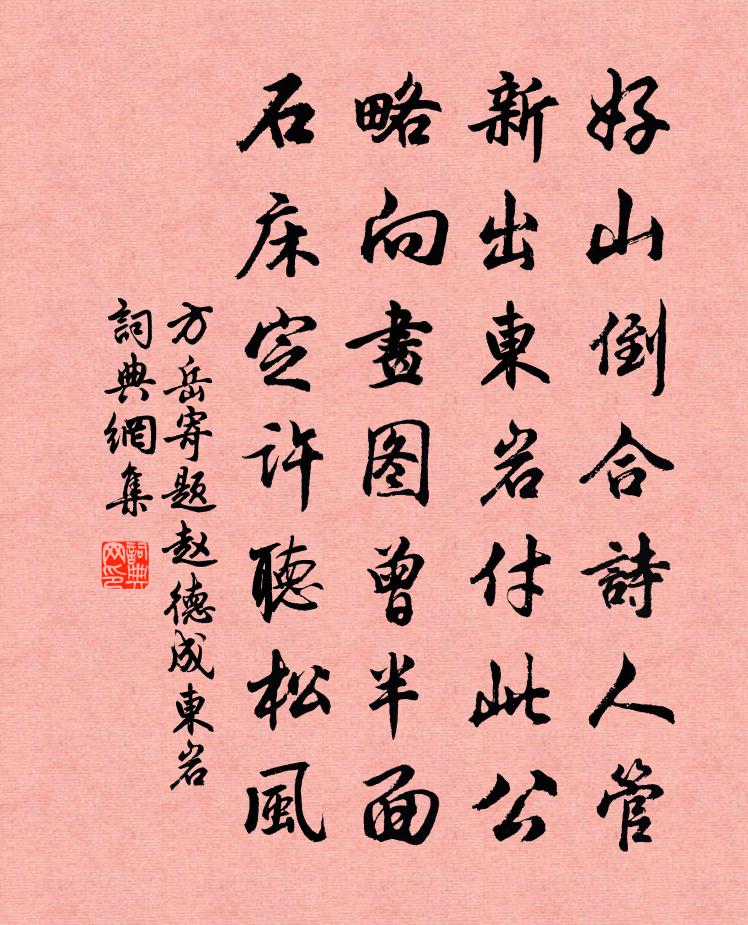 好山倒合詩人管
新出東岩付此公
略向畫图曾半面
石床定许聽松風
方岳寄题赵德成東岩
詞典網集
詞典网印